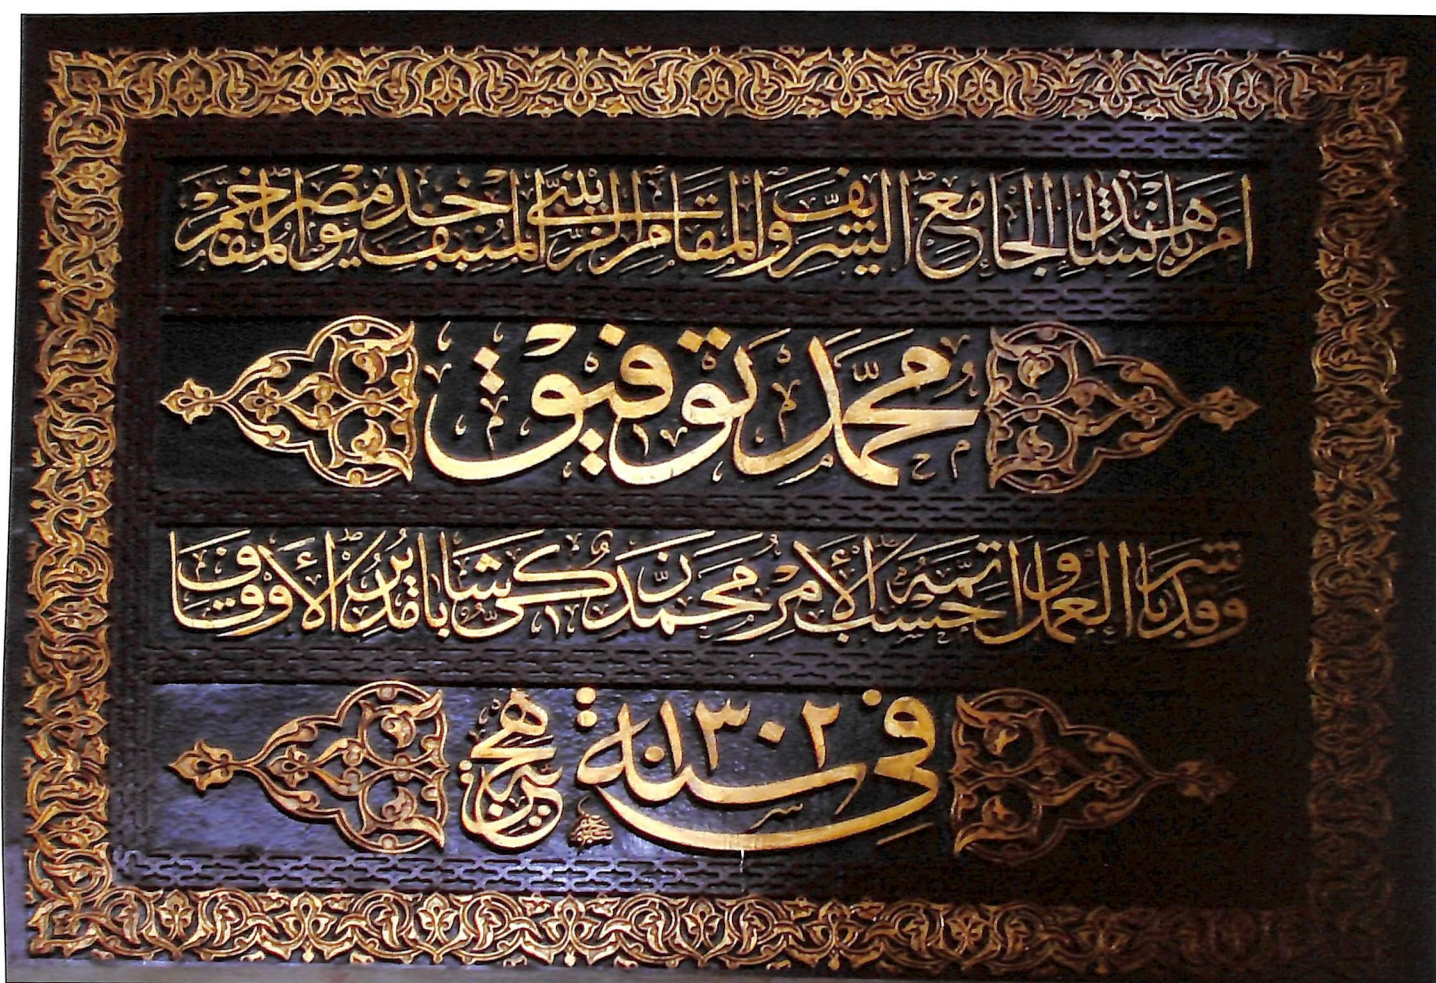 أمر بإنشاء هذا الجامع الشريف والمقام الزينبي المنيف خديو مصر المفخم
محمد توفيق
وقد باشر العمل وأتمه حسب الأمر محمد زكي باشا مدير الأوقاف
في سنة ١٣٠٢ هجرية